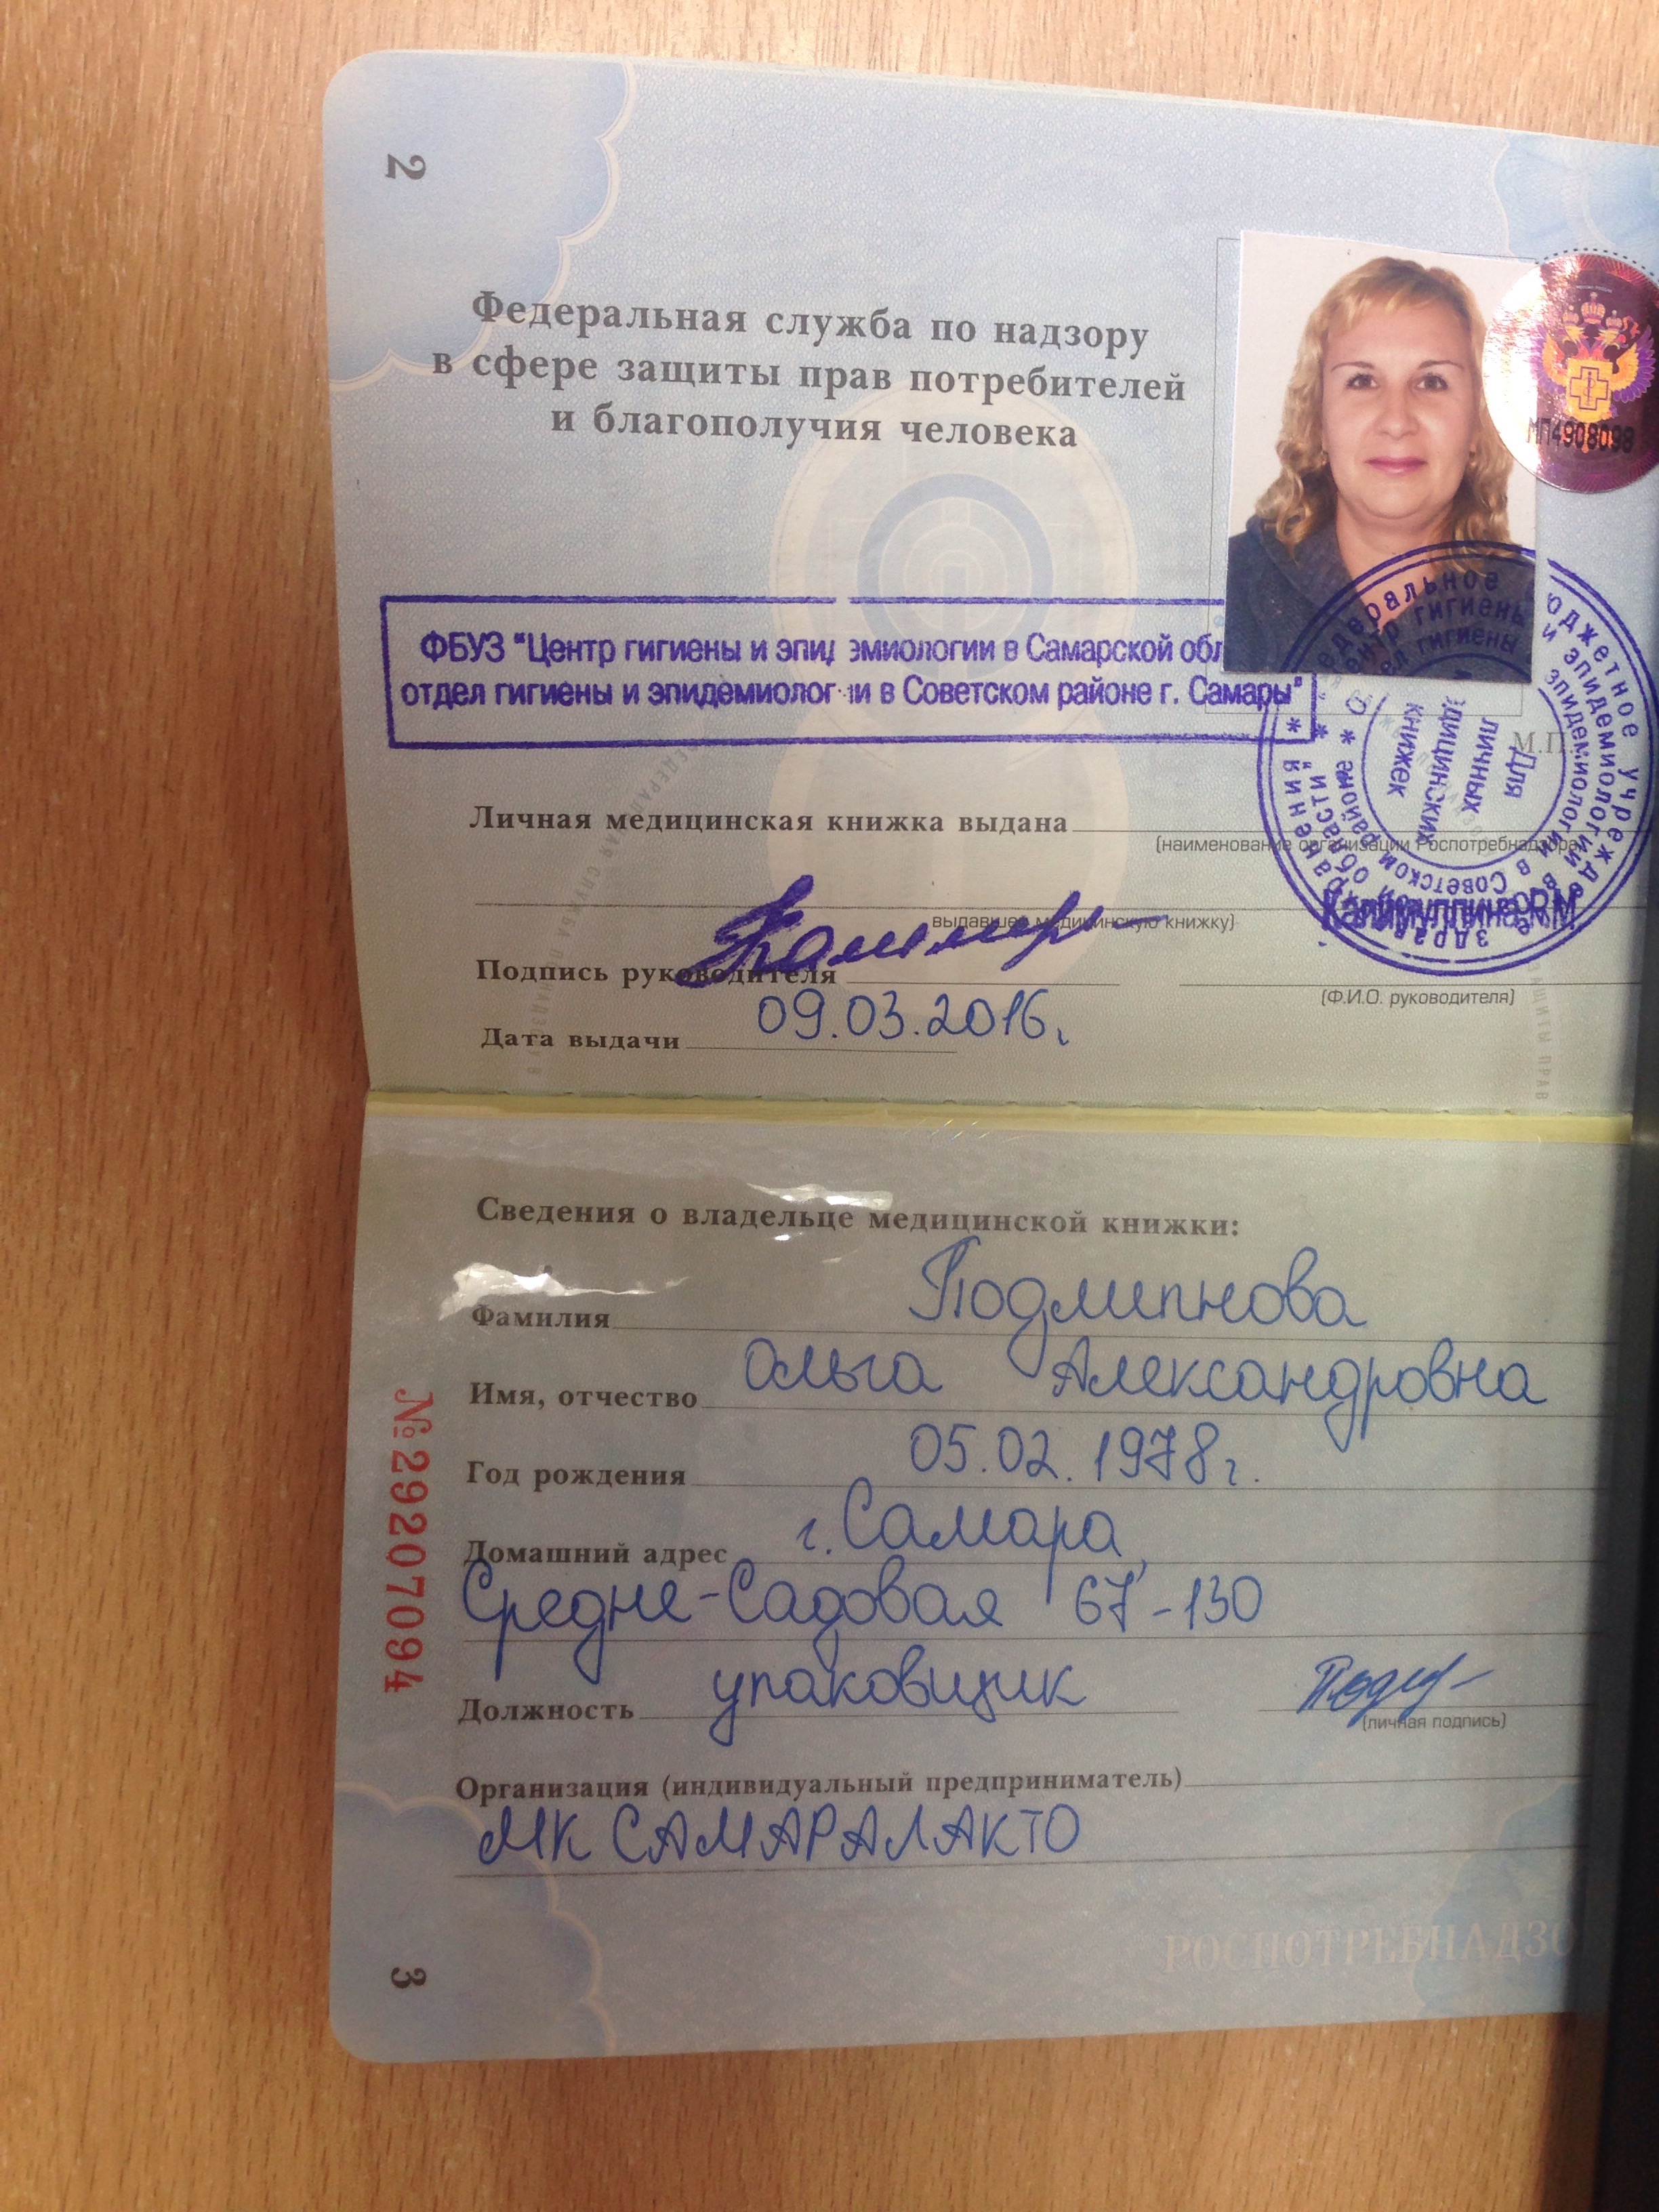 2
Федеральная служба по надзору
в сфере защиты прав потребителей
и благополучия человека
МП4908098
ФБУЗ "Центр гигиены и эпидемиологии в Самарской обл
отдел гигиены и эпидемиологии в Советском районе г. Самары"
Для
личных
медицинских
книжек
М.П.
Личная медицинская книжка выдана
(наименование организации Роспотребнадзора,
выдавшей медицинскую книжку)
Калимуллина Р.М
Подпись руководителя
(Ф.И.О. руководителя)
Дата выдачи 09.03.2016г
Сведения о владельце медицинской книжки:
Фамилия Подлипнова
Имя, отчество Ольга Александровна
Год рождения 05.02.1978г.
Домашний адрес г. Самара,
Средне-Садовая 67-130
Должность упаковщик
(личная подпись)
Организация (индивидуальный предприниматель)
МК САМАРАЛАКТО
№29207094
РОСПОТРЕБНАДЗО
3